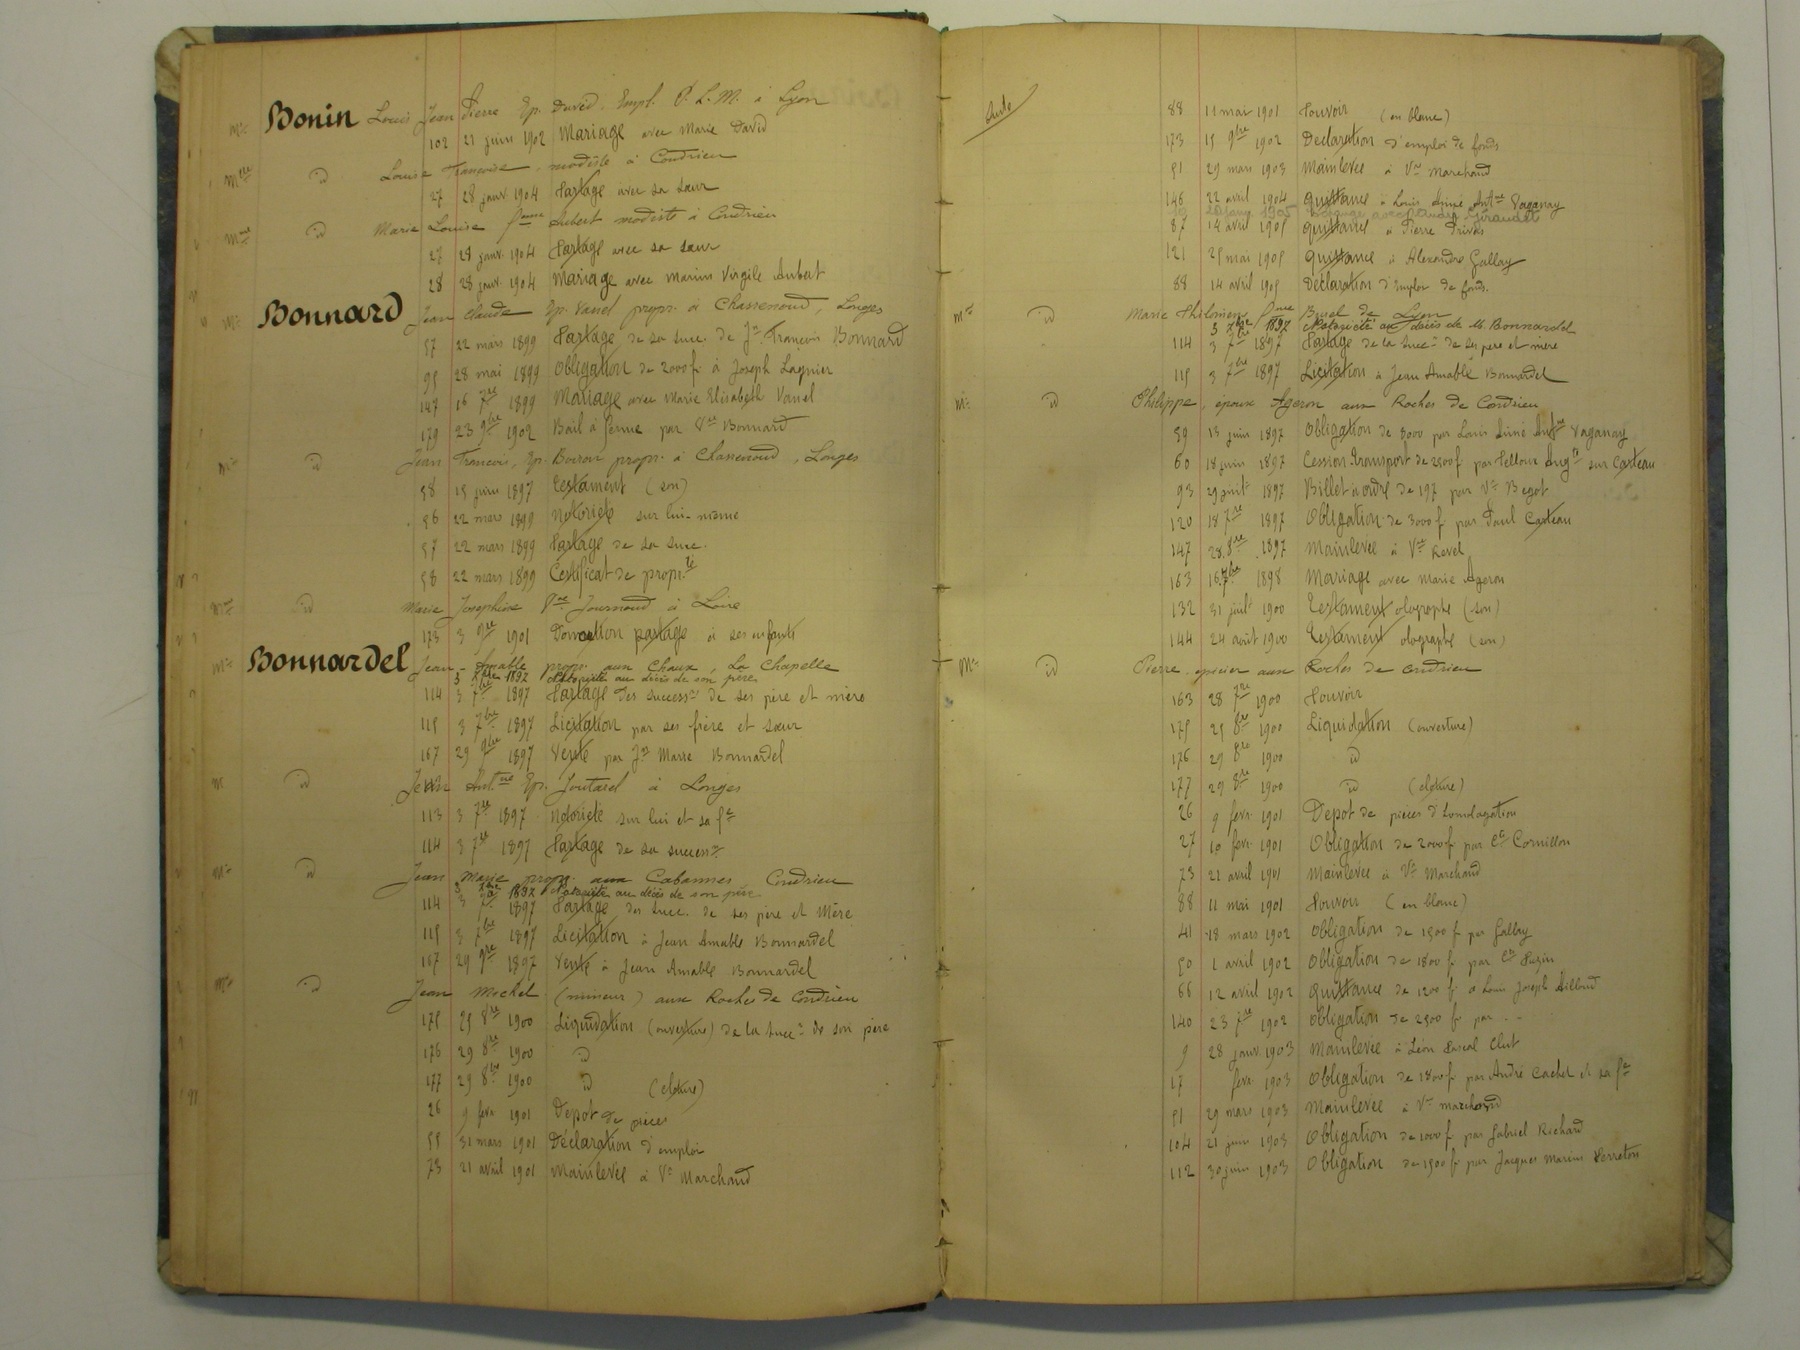 Mr Bonin Louis Jean Pierre Ep. David, Empl. P. L. M. à Lyon
102 21 juin 1902 Mariage avec Marie David
Melle id Louise Françoise, modiste à Condrieu
27 28 janv. 1904 Partage avec sa sœur
Mme id Marie Louise fme Aubert modiste à Condrieu
27 28 janv. 1904 Partage avec sa sœur
28 28 janv. 1904 Mariage avec Marius Virgile Aubert
Mr Bonnard Jean Claude Ep. Vanel propr. à Chassenoud, Longes
57 22 mars 1899 Partage de sa succ. de Jn François Bonnard
95 28 mai 1899 Obligation de 2000 f. à Joseph Lagnier
147 16 7bre 1899 Mariage avec Marie Elisabeth Vanel
179 23 9bre 1902 Bail à ferme par Vve Bonnard
Mr id Jean François, Ep. Boiron propr. à Chassenoud, Longes
58 15 juin 1897 Testament (son)
56 22 mars 1899 Notoriété sur lui-même
57 22 mars 1899 Partage de sa succ.
58 22 mars 1899 Certificat de propr.té
Mme id Marie Josephine Vve Journoud à Loire
173 3 9bre 1901 Donation partage à ses enfants
Mr Bonnardel Jean-Amable propr. aux Chaux, La Chapelle
3 7bre 1897 Notoriété au décès de son père
114 3 7bre 1897 Partage des success.ns de ses père et mère
115 3 7bre 1897 Licitation par ses frère et sœur
167 29 9bre 1897 Vente par Jn Marie Bonnardel
M id Jean Antne Ep. Joutard à Longes
113 3 7bre 1897 Notoriété sur lui et sa fe
114 3 7bre 1897 Partage de sa success.n
Mr id Jean Marie propr. aux Cabannes Condrieu
3 7bre 1897 Notoriété au décès de son père
114 3 7bre 1897 Partage des succ. de ses père et mère
115 3 7bre 1897 Licitation à Jean Amable Bonnardel
167 29 9bre 1897 Vente à Jean Amable Bonnardel
Mr id Jean Michel (mineur) aux Roches de Condrieu
175 25 8bre 1900 Liquidation (ouverture) de la succ.n de son père
176 29 8bre 1900 id
177 29 8bre 1900 id (cloture)
26 9 fevr 1901 Depot de pièces
55 31 mars 1901 Déclaration d'emploi
73 21 avril 1901 Mainlevée à Ve Marchand
Suite
88 11 mai 1901 Pouvoir (en blanc)
173 15 9bre 1902 Declaration d'emploi de fonds
51 29 mars 1903 Mainlevée à Vve Marchand
146 22 avril 1904 Quittance à Louis Aimé Antne Vaganay
87 14 avril 1905 Quittance à Pierre Privas
121 25 mai 1905 Quittance à Alexandre Gallay
88 14 avril 1905 Déclaration d'emploi de fonds.
Me id Marie Philomène fme Buel de Lyon
3 7bre 1897 Notoriété au décès de M. Bonnardel
114 3 7bre 1897 Partage de la succ.n de ses père et mère
115 3 7bre 1897 Licitation à Jean Amable Bonnardel
Mr id Philippe, époux Ageron aux Roches de Condrieu
59 13 juin 1897 Obligation de 8000 par Louis Aimé Antne Vaganay
60 18 juin 1897 Cession-transport de 2500 f. par Pelloux Augte sur Carteau
93 29 juilt 1897 Billet à ordre de 197 par Ve Begot
120 18 7bre 1897 Obligation de 3000 f. par Paul Carteau
147 28 8bre 1897 Mainlevée à Vve Revel
163 16 7bre 1898 Mariage avec Marie Ageron
132 31 juilt 1900 Testament olographe (son)
144 24 août 1900 Testament olographe (son)
Mr id Pierre, epicier aux Roches de Condrieu
163 28 7bre 1900 Pouvoir
175 25 8bre 1900 Liquidation (ouverture)
176 29 8bre 1900 id
177 29 8bre 1900 id (cloture)
26 9 fevr. 1901 Depot de pieces d'homologation
27 10 fevr. 1901 Obligation de 2000 f. par Ct Cornillon
73 21 avril 1901 Mainlevée à Ve Marchand
88 11 mai 1901 Pouvoir (en blanc)
41 18 mars 1902 Obligation de 1500 f. par Gallay
50 1 avril 1902 Obligation de 1800 f. par
66 12 avril 1902 Quittance de 1200 f. à Louis Joseph
140 23 7bre 1902 Obligation de 2500 f. par . .
9 28 janv. 1903 Mainlevée à Léon Pascal Clut
17 fevr. 1903 Obligation de 1800 f. par André Cachet et sa fe
51 29 mars 1903 Mainlevée à Ve Marchand
104 21 juin 1903 Obligation de 1000 f. par Gabriel Richard
112 30 juin 1903 Obligation de 1500 f. par Jacques Marius Perreton